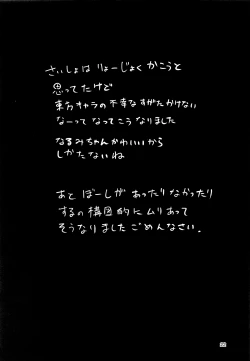 さいしょは りょーじょく かこうと
思ってたけど
東方キャラの不幸なすがたかけない
なーって なってこうなりました
なるみちゃんかわいいから
しかたないね
あと ぼーしが あったりなかったり
するの構図的にムリあって
そうなりましたごめんなさい。